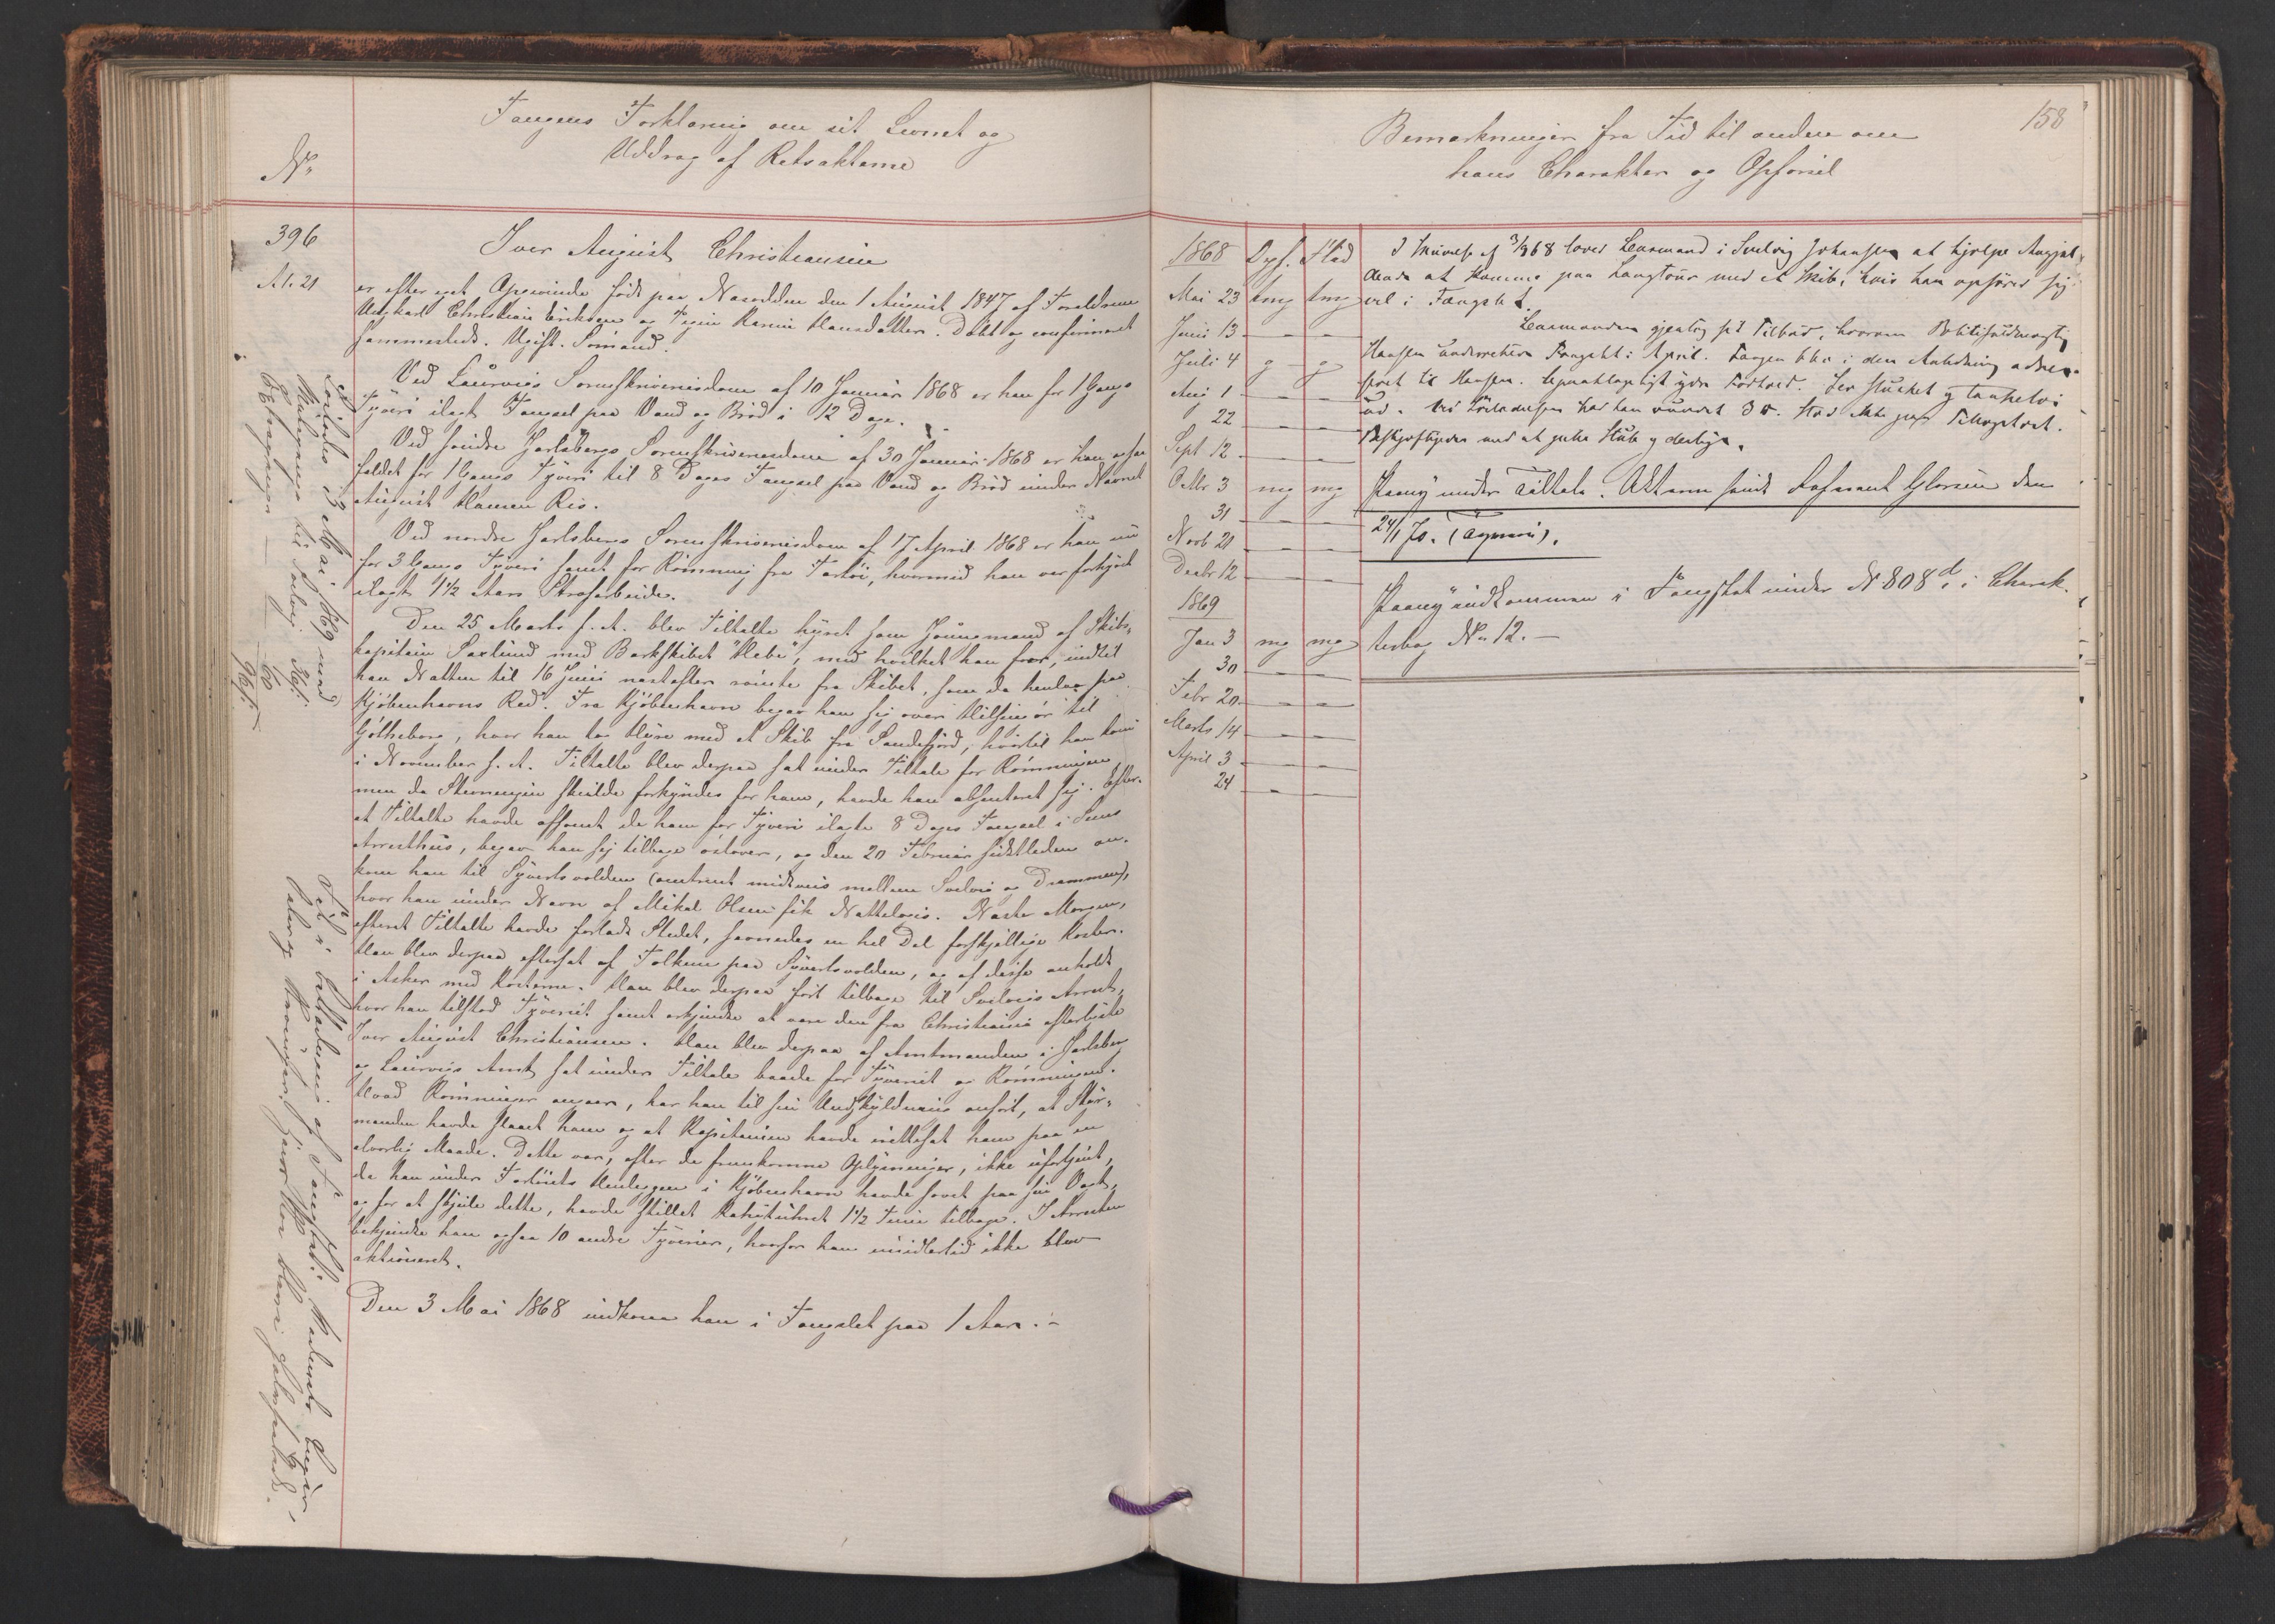 Fangens Forklaring om sit Levnet og
Uddrag af Retsakterne
No
396
Al. 21
Iver August Christiansen
er efter eget Opgivende født paa Næsodden den 1 August 1847 af Forældrene
Ungkarl Christian Eriksen og Pigen Karen Hansdatter. Døbt og confirmeret
sammesteds. Ugift. Sømand.
Ved Laurvigs Sorenskriverisdom af 10 Januar 1868 er han for 1 Gangs
Tyveri ilagt Fængsel paa Vand og Brød i 12 Dage.
Ved søndre Jarlsbergs Sorenskriverisdom af 30 Januar 1868 er han ogsaa
fældet for 1 Gangs Tyveri til 8 Dages Fængsel paa Vand og Brød under Navnet
August Hansen Ris.
Ved nordre Jarlsbergs Sorenskriverisdom af 17 April 1868 er han nu
for 3 Gangs Tyveri samt for Rømning fra Fartøi, hvormed han var forhyret
ilagt 1 1/2 Aars Strafarbeide.
Den 25 Marts f. A. blev Tiltalte hyret som Jungmand af Skibs-
kapitain Saxlund med Barkskibet "Hebe", med hvilket han foer, indtil
han Natten til 16 Juni næstefter rømte fra Skibet, som da henlaa paa
Kjøbenhavns Red. Fra Kjøbenhavn begav han sig over Helsingør til
Gøtheborg, hvor han tog Hyre med et Skib fra Sandefjord, hvortil han kom
i November f. A. Tiltalte blev derpaa sat under Tiltale for Rømningen
men da Stevningen skulde forkyndes for ham, havde han absenteret sig. Efter-
at Tiltalte havde afsonet de ham for Tyveri ilagte 8 Dages Fængsel i Sems
Arresthus, begav han sig tilbage østover, og den 20 Februar sidstleden an-
kom han til Syvertsvolden (omtrent midtveis mellem Svelvig og Drammen),
hvor han under Navn af Mikal Olsen fik Nattelogis. Næste Morgen,
efterat Tiltalte havde forladt Stedet, savnedes en hel Del forskjellige Koster.
Han blev derpaa eftersat af Folkene paa Syvertsvolden, og af disse anholdt
i Asker med Kosterne. Han blev derpaa ført tilbage til Svelvigs Arrest,
hvor han tilstod Tyveriet samt erkjendte at være den fra Christiania efterlyste
Iver August Christiansen. Han blev derpaa af Amtmanden i Jarlsberg
og Laurvigs Amt sat under Tiltale baade for Tyveriet og Rømningen.
Hvad Rømningen angaar, har han til sin Undskyldning anført, at Styr-
manden havde slaaet ham og at Kapitainen havde irettesat ham paa en
alvorlig Maade. Dette var, efter de fremkomne Oplysninger, ikke ufortjent,
da han under Fartøiets Henliggen i Kjøbenhavn havde sovet paa sin Vagt,
og for at skjule dette, havde stillet Kahytuhret 1 1/2 Time tilbage. I Arresten
bekjendte han ogsaa 10 andre Tyverier, hvorfor han imidlertid ikke blev
aktioneret.
Den 3 Mai 1868 indkom han i Fængslet paa 1 Aar.
Løslodes 3 Mai 1869 med
til Svelvig
158
Bemærkninger fra Tid til anden om
hans Charakter og Opførsel
1868 Opf. Flid
Mai 23 tmg tmg
Juni 13 — —
Juli 4 g g
Aug 1 — —
22 — —
Sept 12 — —
Octbr 3 mg mg
31 — —
Novb 21 — —
Decbr 12 — —
1869
Jan 3 mg mg
30 — —
Febr 20 — —
Marts 14 — —
April 3 — —
24 — —
I Skrivelse af 3/9 68 lover Lensmand i Svelvig Johansen at hjelpe
at komme paa Langtour med et Skib, hvis han opfører sig
vel i Fængslet.
Lensmanden gjentog sit Tilbud, hvorom Politifuldmægtig
Hansen underretter Fængslet i April. Fangen blev i den Anledning adres-
seret til Hansen.
ud. Ved Løsladelsen har han
Beskjæftigelse med at
Paany under Tiltale. Akterne sendt den
24/1 70.
Paany indkommen i Fængslet under No 808 d. i Charak-
terbog No 12.